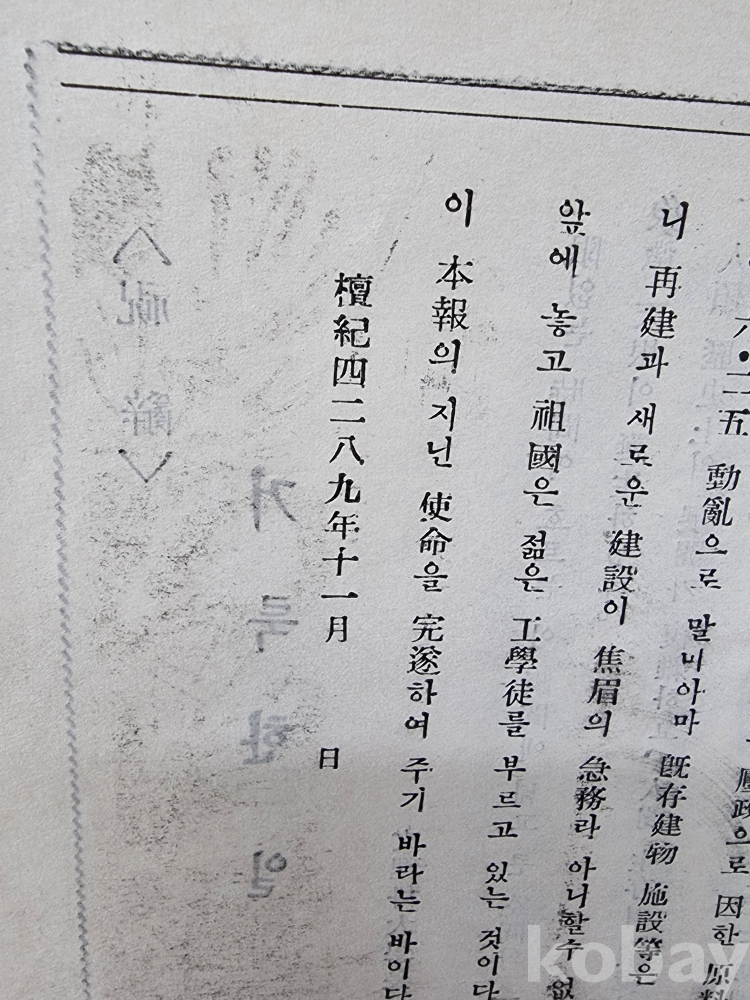 壓政으로 因한 原料
六•二五 動亂으로 말미아마 旣存建物 施設等은
니 再建과 새로운 建設이 焦眉의 急務라 아니할수 없
앞에 놓고 祖國은 젊은 工學徒를 부르고 있는 것이다
이 本報의 지닌 使命을 完遂하여 주기 바라는 바이다
檀紀四二八九年十一月 日
kobay